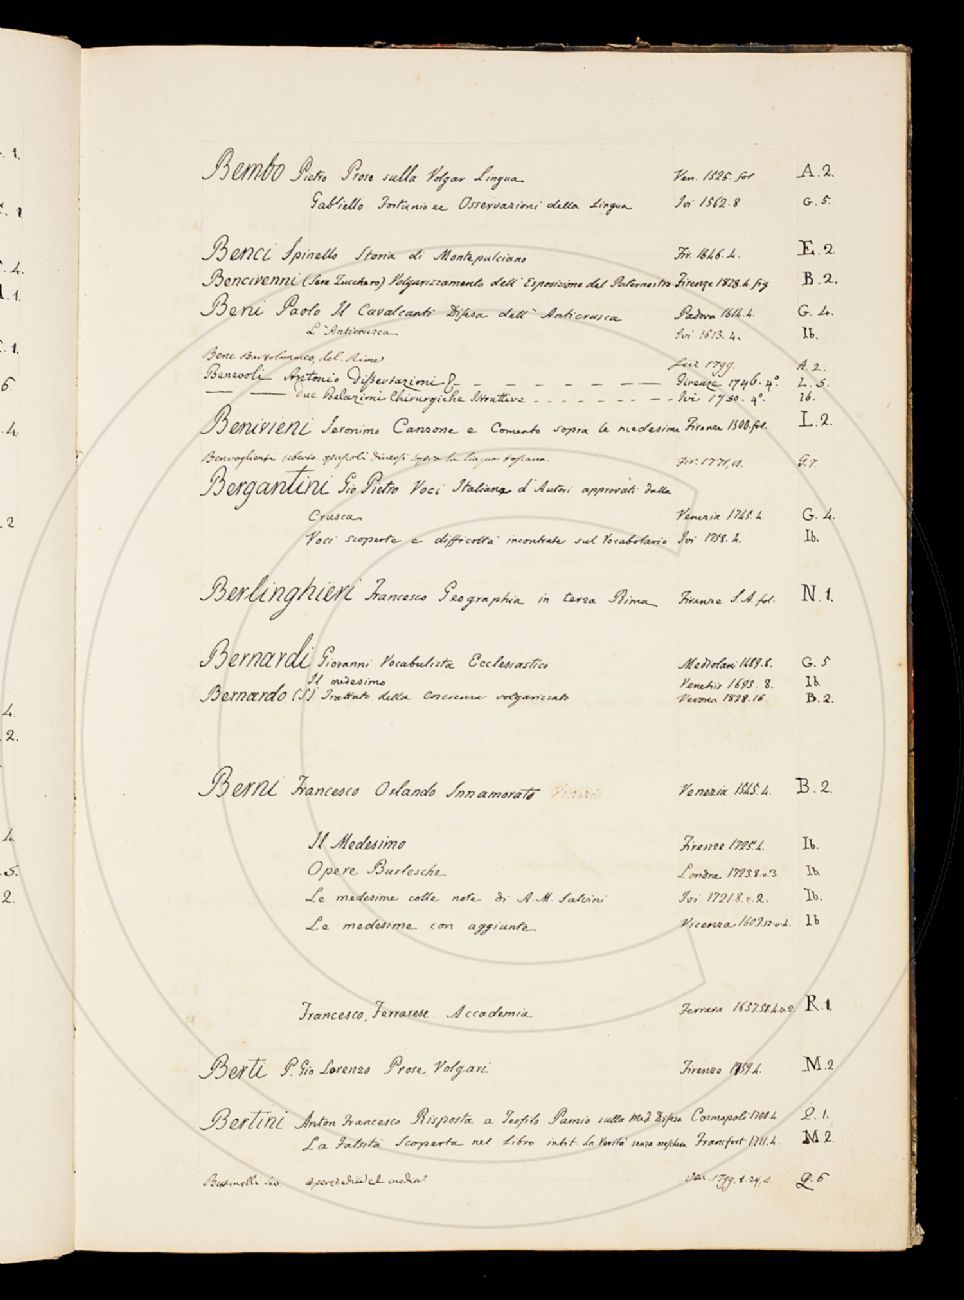 Bembo Pietro Prose sulla Volgar Lingua Ven. 1525. fol A.2.
Gabriello Fortunio ec Osservazioni della Lingua Ivi 1562.8 G.5.
Benci Spinello Storia di Montepulciano Fir. 1646.4. E.2
Bencivenni (Sere Zucchero) Volgarizzamento dell' Esposizione del Paternostro Firenze 1828.4. fig B.2.
Beni Paolo Il Cavalcanti Difesa dell' Anticrusca Padova 1614.4. G.4.
L'Anticrusca Ivi 1613.4. Ib.
Bene Bartolomeo, del Rime 1799. A.2.
Benevoli Antonio Dissertazioni Firenze 1746.4º. L.5.
due Relazioni Chirurgiche Istruttive Ivi 1750.4º. Ib.
Benivieni Jeronimo Canzone e Comento sopra le medesime Firenze 1500.fol. L.2.
sopra la lingua toscana. Fir. 1771 G.
Bergantini Gio. Pietro Voci Italiane d'Autori approvati dalla
Crusca Venezia 1745.4. G.4.
Voci scoperte e difficoltà incontrate sul Vocabolario Ivi 1758.4. Ib.
Berlinghieri Francesco Geographia in terza Rima Firenze S.A. fol. N.1.
Bernardi Giovanni Vocabulista Ecclesiastico Mediolani 1489.8. G.5
Il medesimo Venetiis 1693.8. Ib.
Bernardo (S.) Trattato della Coscienza volgarizzato Verona 1828.16. B.2.
Berni Francesco Orlando Innamorato Venezia 1545.4. B.2.
Il Medesimo Firenze 1725.4. Ib.
Opere Burlesche Londra 1723.8.v.3 Ib.
Le medesime colle note di A.M. Salvini Ivi 1721 8.v.2. Ib.
Le medesime con aggiunte Vicenza 1609.12.v.4. Ib
Francesco, Ferrarese Accademia Ferrara 1657.58.4.v.2 R.1.
Berti P. Gio Lorenzo Prose Volgari Firenze 1759.4. M.2
Bertini Anton Francesco Risposta a Teofilo Pamio sulla Med. Difesa Cosmopoli 1700.4. Q.1.
La Falsità Scoperta nel libro intit. La Verità senza maschera Francfort 1711.4. M.2.
opere edite ed inedite Ven. 1799. Q.6